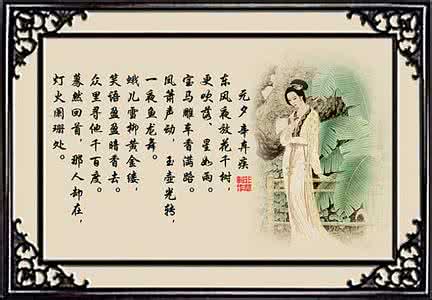 元夕 辛弃疾
东风夜放花千树，
更吹落、星如雨。
宝马雕车香满路。
凤箫声动，玉壶光转，
一夜鱼龙舞。
蛾儿雪柳黄金缕，
笑语盈盈暗香去。
众里寻他千百度。
蓦然回首，那人却在，
灯火阑珊处。